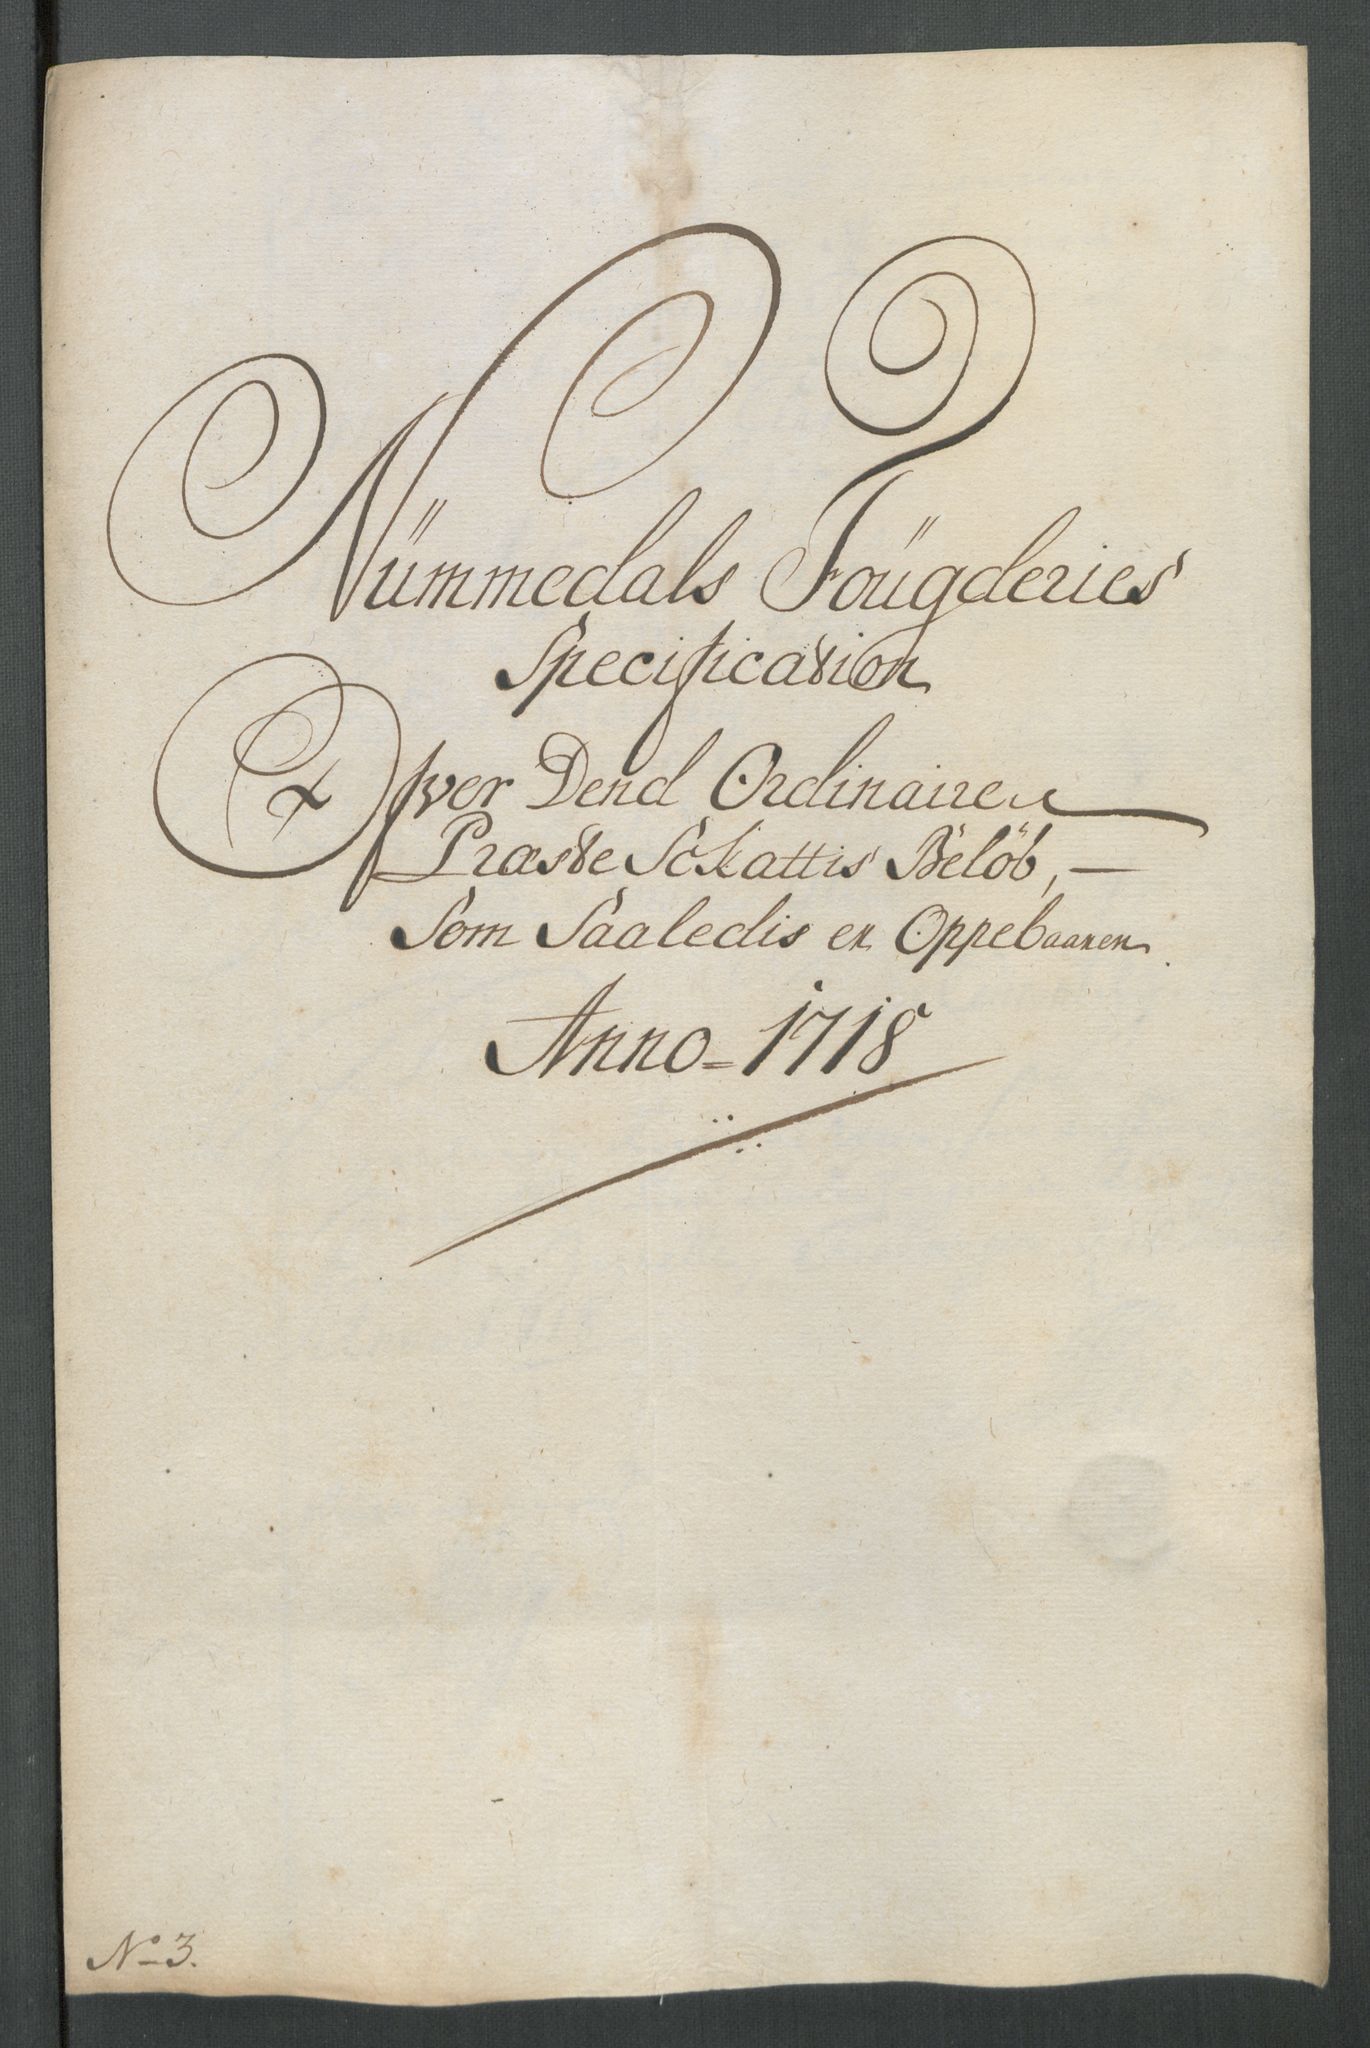 Nümmedals Foügderies
Specification
Ofver Dend Ordinaire
Præste Schattis Beløb, —
Som Saaledis er Oppebaaren
Anno = 1718
No 3.